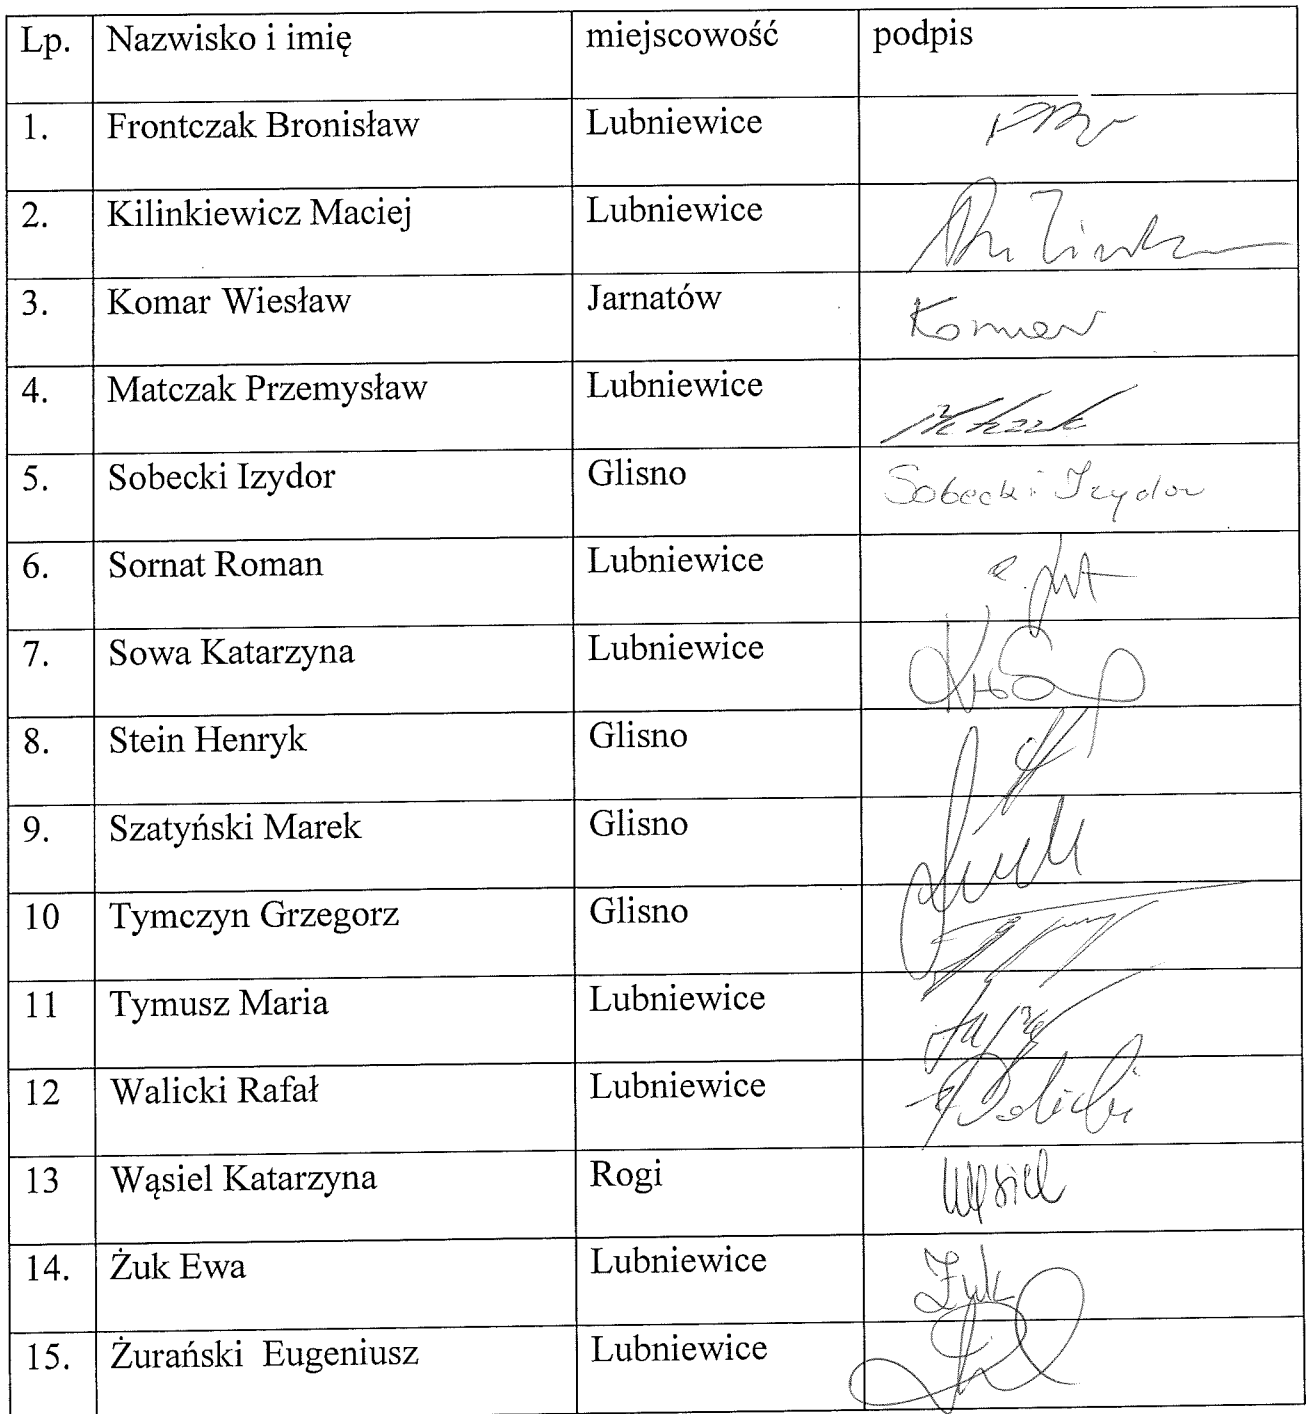 Lp. Nazwisko i imię miejscowość podpis
1. Frontczak Bronisław Lubniewice
2. Kilinkiewicz Maciej Lubniewice
3. Komar Wiesław Jarnatów Komar
4. Matczak Przemysław Lubniewice
5. Sobecki Izydor Glisno Sobecki Izydor
6. Sornat Roman Lubniewice
7. Sowa Katarzyna Lubniewice
8. Stein Henryk Glisno
9. Szatyński Marek Glisno
10 Tymczyn Grzegorz Glisno
11 Tymusz Maria Lubniewice
12 Walicki Rafał Lubniewice Walicki
13 Wąsiel Katarzyna Rogi Wąsiel
14. Żuk Ewa Lubniewice Żuk
15. Żurański Eugeniusz Lubniewice